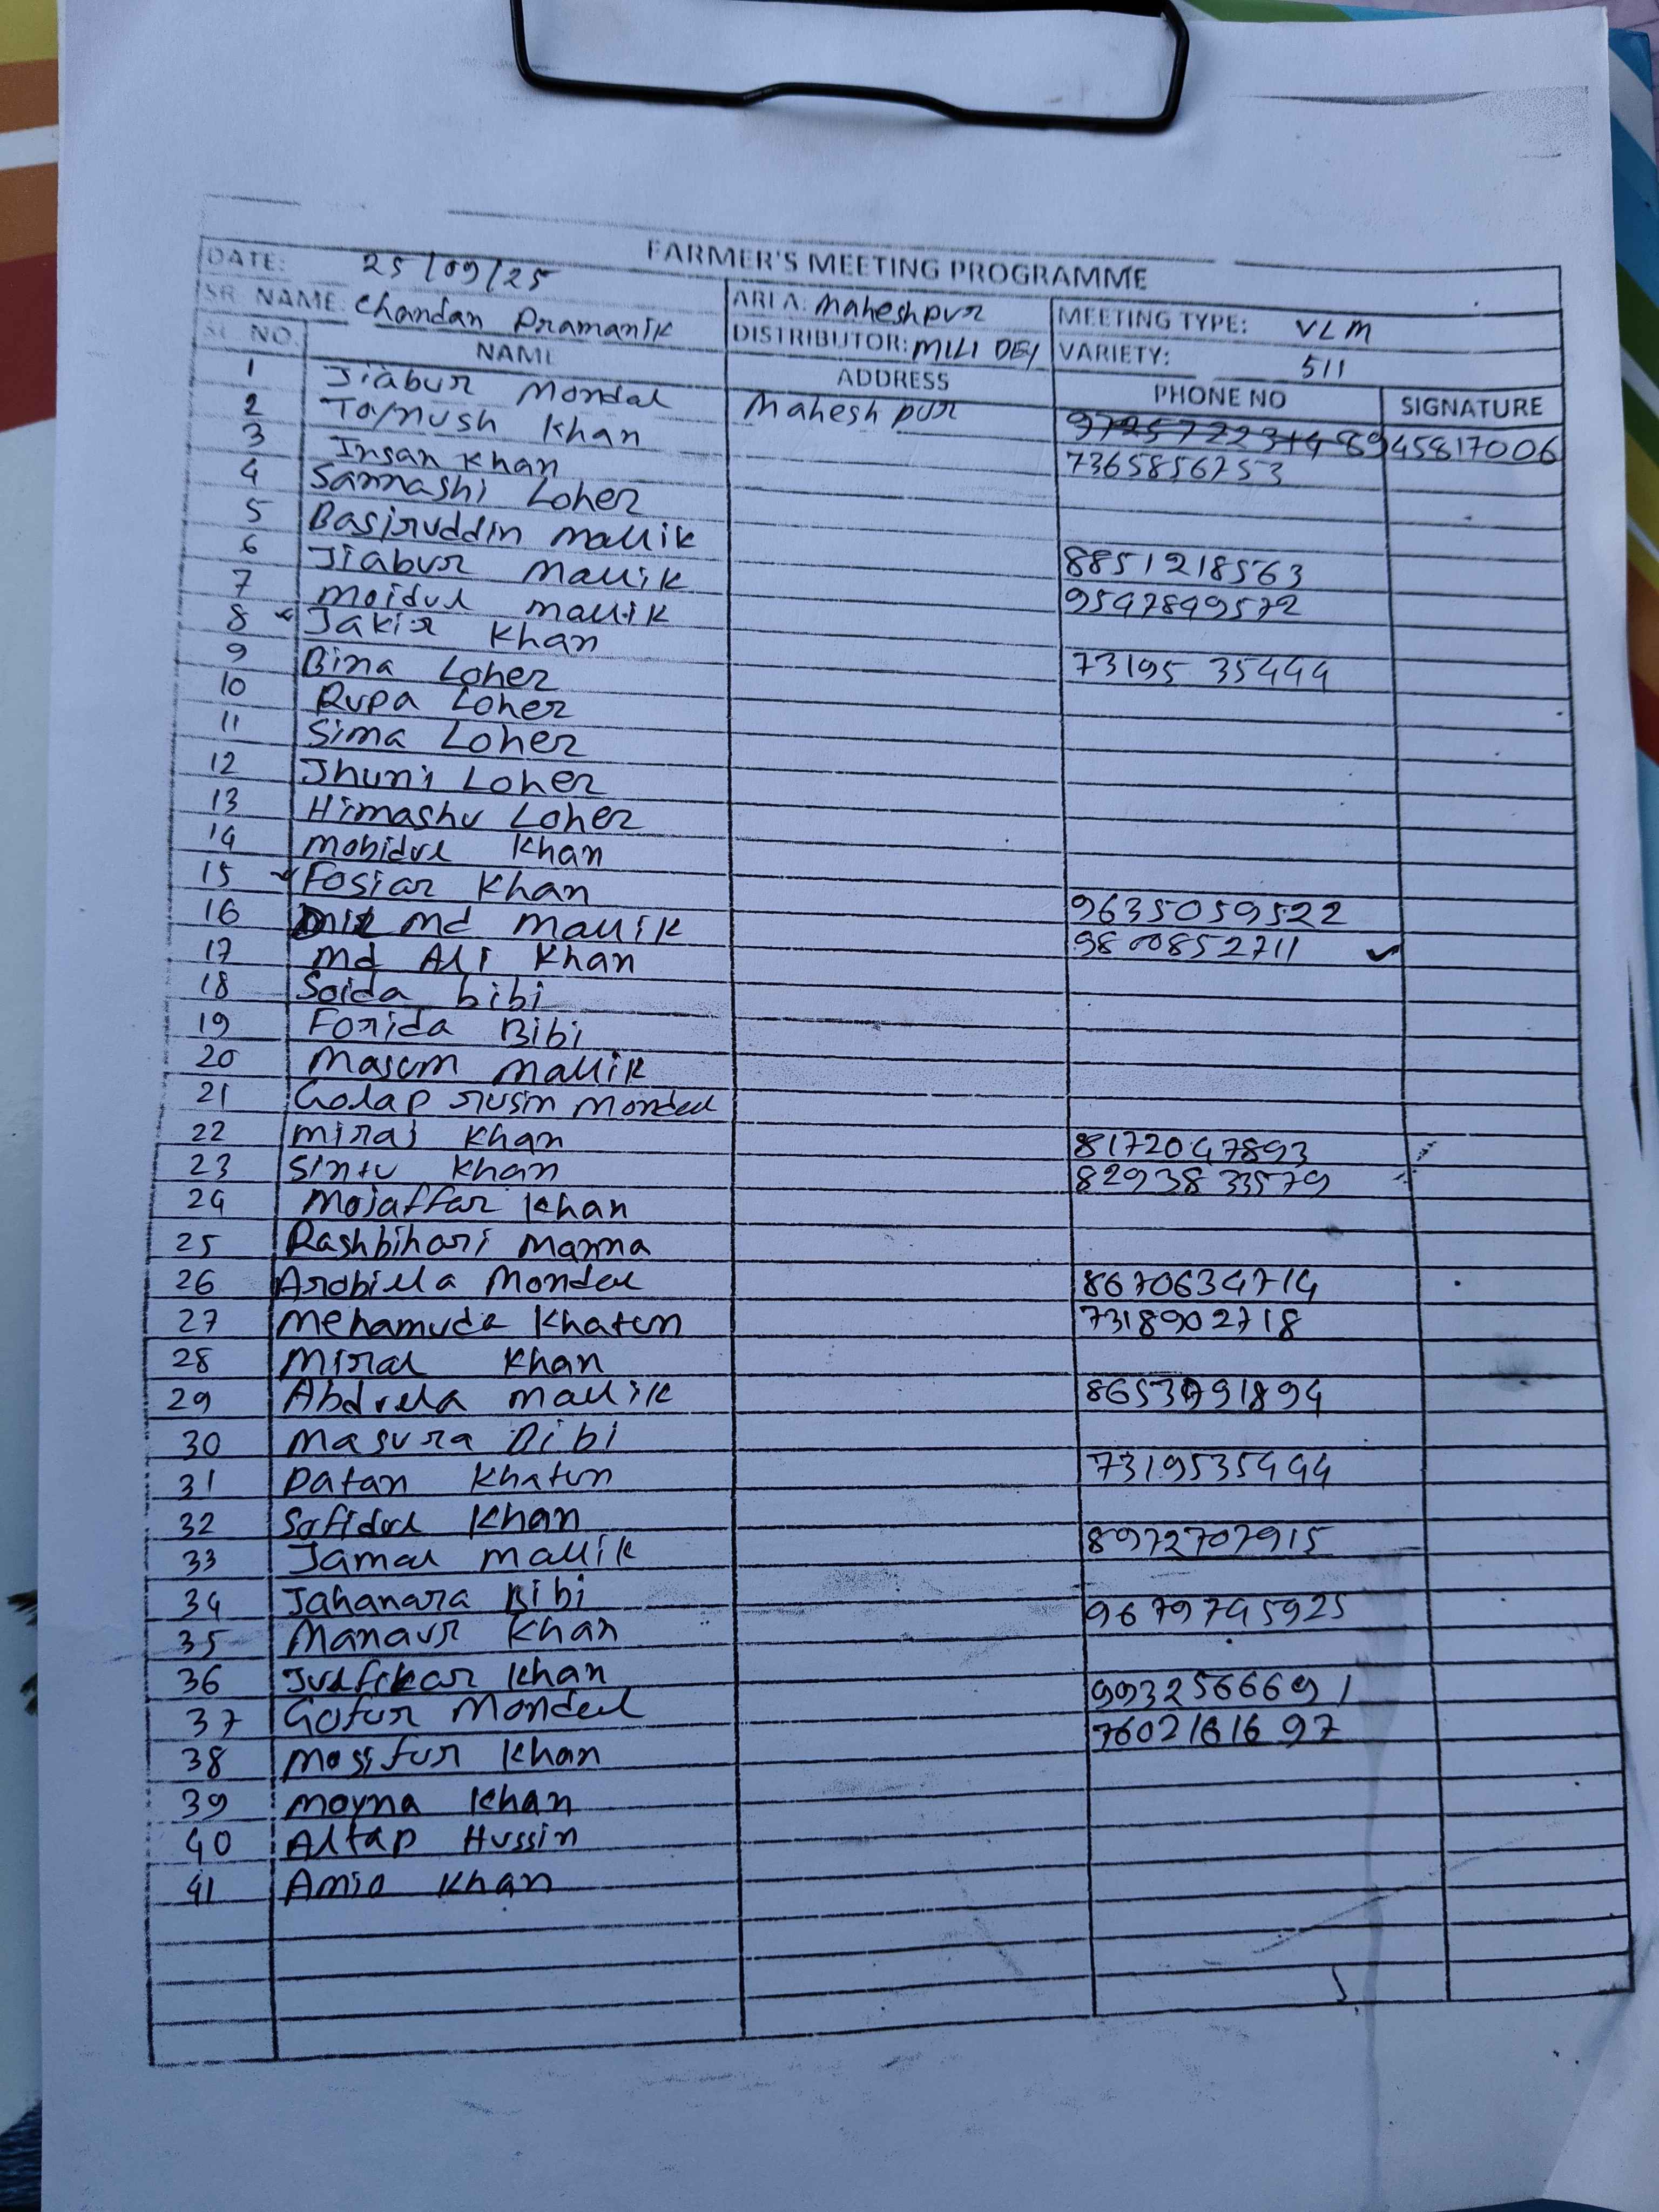 FARMER'S MEETING PROGRAMME
DATE: 25/09/25
SR. NAME: Chandan Pramanik AREA: Maheshpur MEETING TYPE: VLM
DISTRIBUTOR: MILI DEY VARIETY: 511
SL. NO. NAME ADDRESS PHONE NO SIGNATURE
1 Jiabur Mondal Maheshpur 8945817006
2 Khan 7365856253
3 Insan Khan
4 Sannashi Loher
5 Basiruddin Mallik 8851218563
6 Jiabur Mallik 9547849572
7 Moidul Mallik
8 Jakir Khan 73195 35444
9 Bina Loher
10 Rupa Loher
11 Sima Loher
12 Jhuni Loher
13 Himashu Loher
14 Mobidul Khan
15 Fosiar Khan 9635059522
16 Md Mallik 9800852711
17 Md Ali Khan
18 Soida bibi
19 Forida Bibi
20 Masum Mallik
21 Golap Mondal
22 Miraj Khan 8172047893
23 Sintu Khan 8293833579
24 Mojaffar Khan
25 Rashbihari Manna
26 Arobilla Mondal 8670634714
27 Mehamuda Khatun 7318902718
28 Miral Khan
29 Abdulla Mallik
30 Masura Bibi
31 Patan Khatun 7319535444
32 Sofidul Khan
33 Jamal Mallik 8972707915
34 Jahanara Bibi
35 Manaur Khan 9679745925
36 Julfikar Khan
37 Gofur Mondal 9932566691
38 Mosifur Khan 7602161697
39 Moyna Khan
40 Altap Hussin
41 Khan